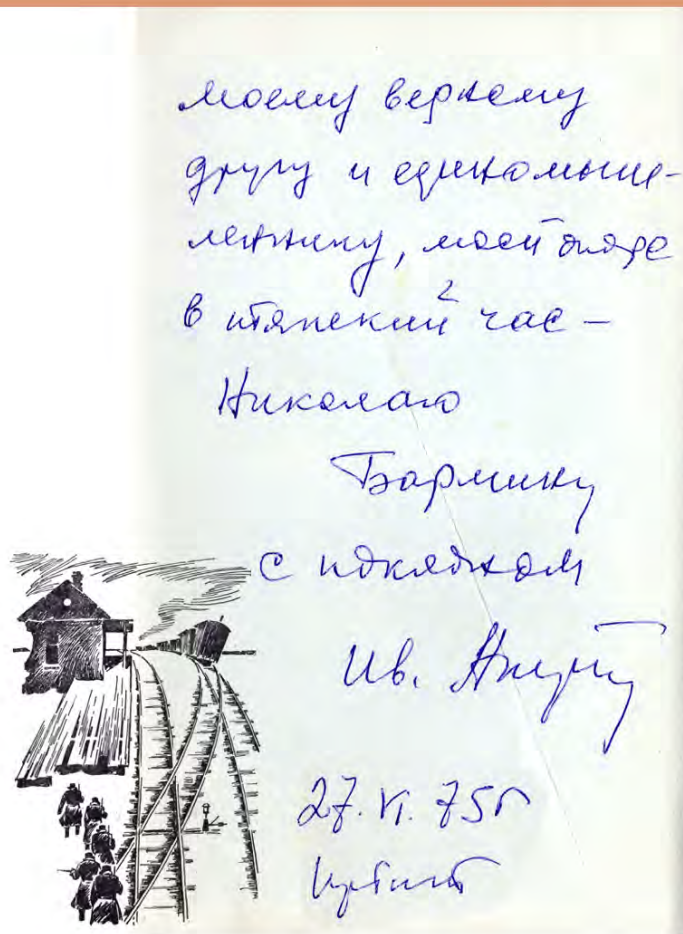 Моему верному
другу и единомыш-
леннику, моей опоре
в тяжский час –
Николаю
Бармину
с поклоном
Ив.
27.VI.75г
Иртыш